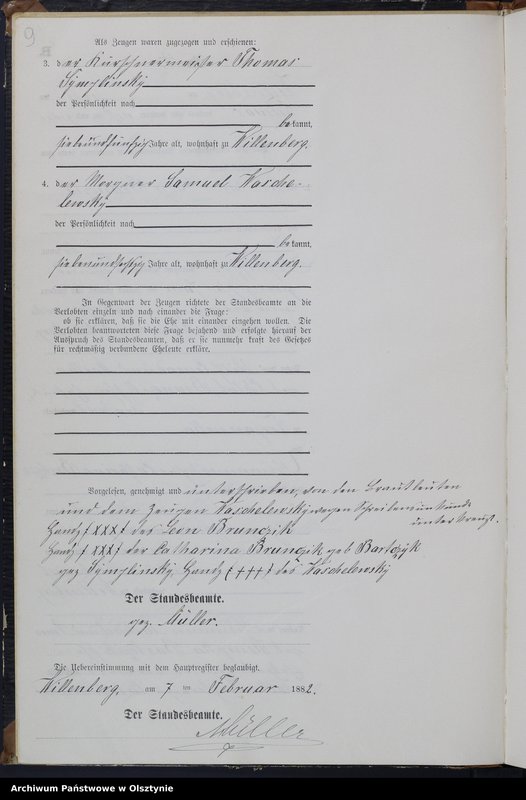 9
Als Zeugen waren zugezogen und erschienen:
3. der Kürschnermeister Thomas
Symplinsky
der Persönlichkeit nach
bekannt,
siebenundfünfzig Jahre alt, wohnhaft zu Willenberg.
4. der Morgner Samuel Wasche-
lewsky
der Persönlichkeit nach
bekannt,
siebenundsechzig Jahre alt, wohnhaft zu Willenberg.
In Gegenwart der Zeugen richtete der Standesbeamte an die
Verlobten einzeln und nach einander die Frage:
ob sie erklären, daß sie die Ehe mit einander eingehen wollen. Die
Verlobten beantworteten diese Frage bejahend und erfolgte hierauf der
Ausspruch des Standesbeamten, daß er sie nunmehr kraft des Gesetzes
für rechtmäßig verbundene Eheleute erkläre.
Vorgelesen, genehmigt und unterschrieben, von den Brautleuten
und dem Zeugen Waschelewsky wegen Schreibensunkunde
unterkreuzt.
Handz. (XXX) des Leon Brunczik
Handz. (XXX) der Catharina Brunczik geb Bartczyk
gez Symplinsky, Handz (+++) des Waschelewsky
Der Standesbeamte.
gez. Müller.
Die Uebereinstimmung mit dem Hauptregister beglaubigt.
Willenberg, am 7 ten Februar 1882.
Der Standesbeamte.
Müller
Archiwum Państwowe w Olsztynie